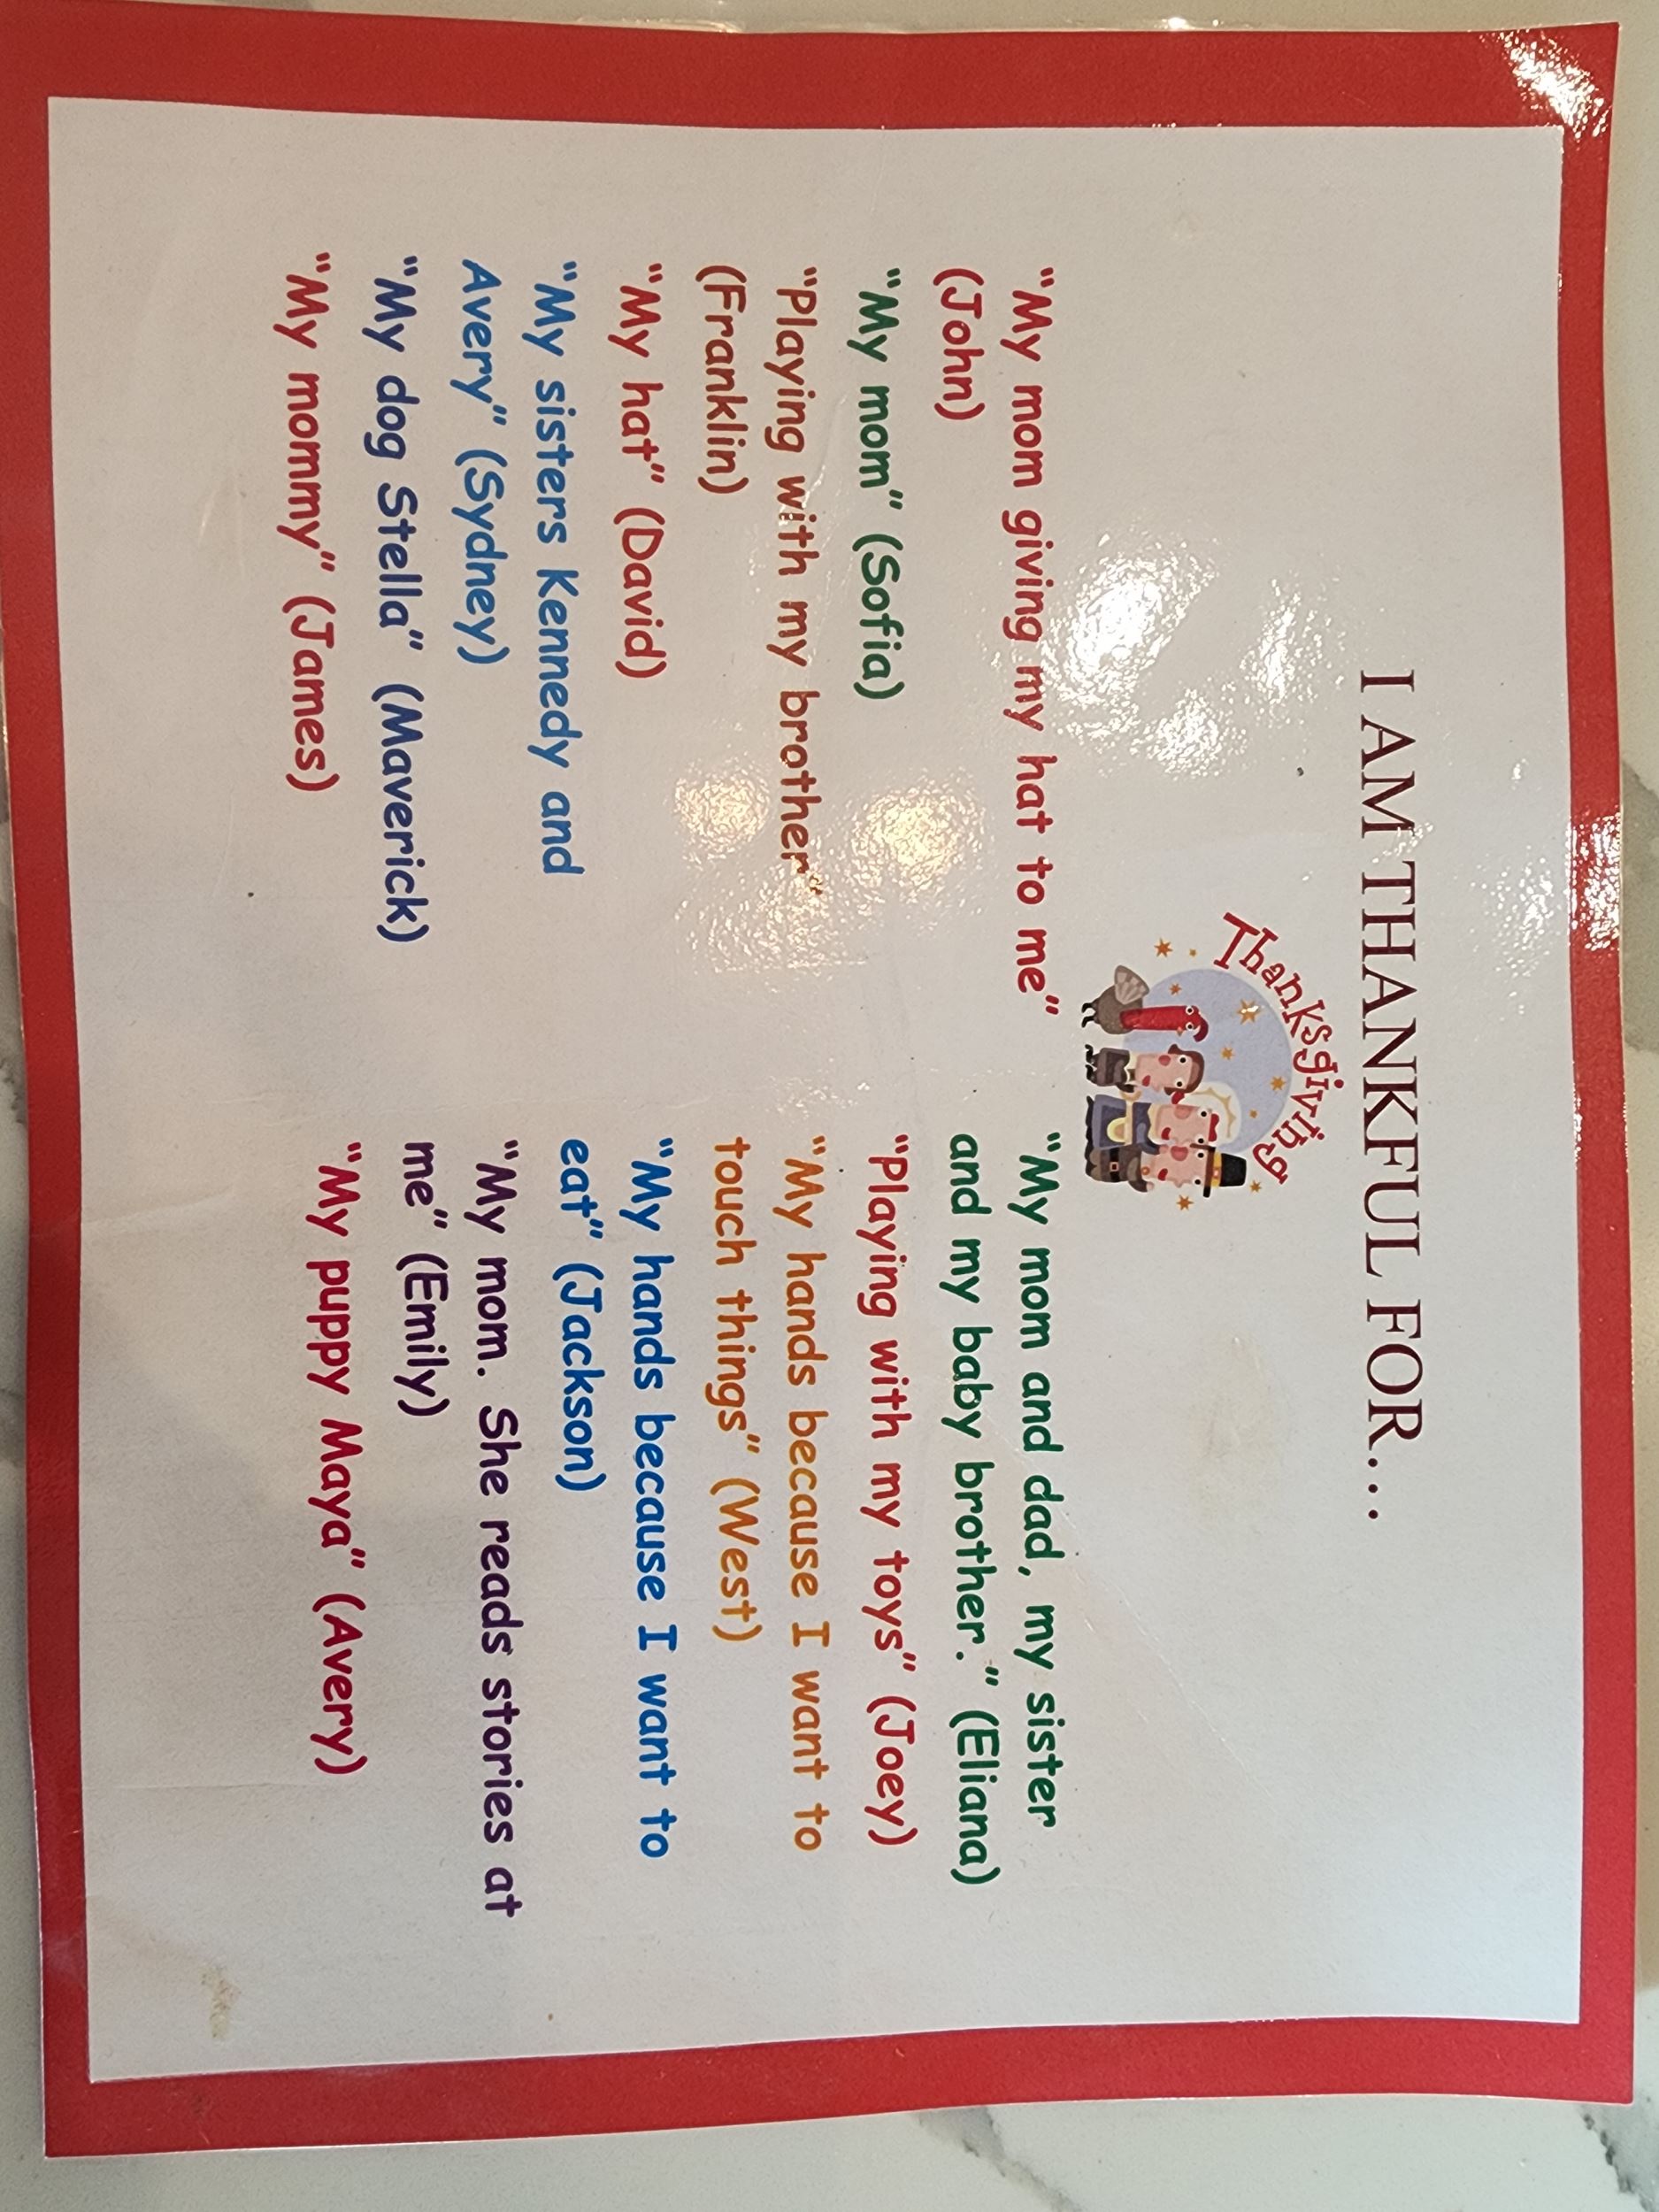 I AM THANKFUL FOR...
Thanksgiving
“My mom giving my hat to me”
(John)
“My mom” (Sofia)
“Playing with my brother”
(Franklin)
“My hat” (David)
“My sisters Kennedy and
Avery” (Sydney)
“My dog Stella” (Maverick)
“My mommy” (James)
“My mom and dad, my sister
and my baby brother.” (Eliana)
“Playing with my toys” (Joey)
“My hands because I want to
touch things” (West)
“My hands because I want to
eat” (Jackson)
“My mom. She reads stories at
me” (Emily)
“My puppy Maya” (Avery)